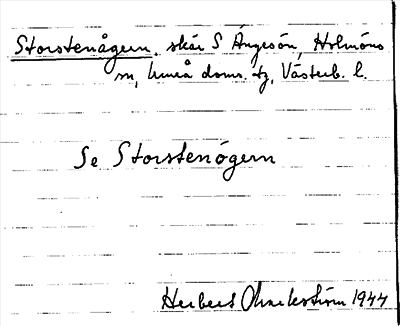 Storstenågern, skär S Ängesön, Holmöns
sn, Umeå doms. tg, Västerb. l.
Se Storstenögern
Herbert Ohnekström 1944